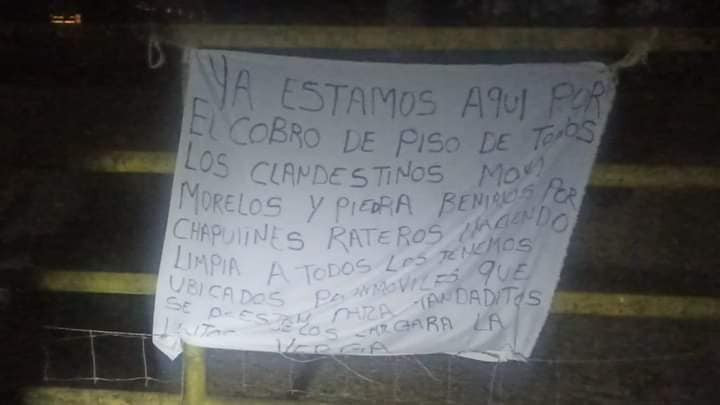 YA ESTAMOS AQUI POR
EL COBRO DE PISO DE TODOS
LOS CLANDESTINOS
MORELOS Y PIEDRA BENIMOS POR
CHAPULINES RATEROS HACIENDO
LIMPIA A TODOS LOS TENEMOS
UBICADOS MOVILES QUE
SE PRESTAN PARA MANDADITOS
LOS CARGARA LA
VERGA